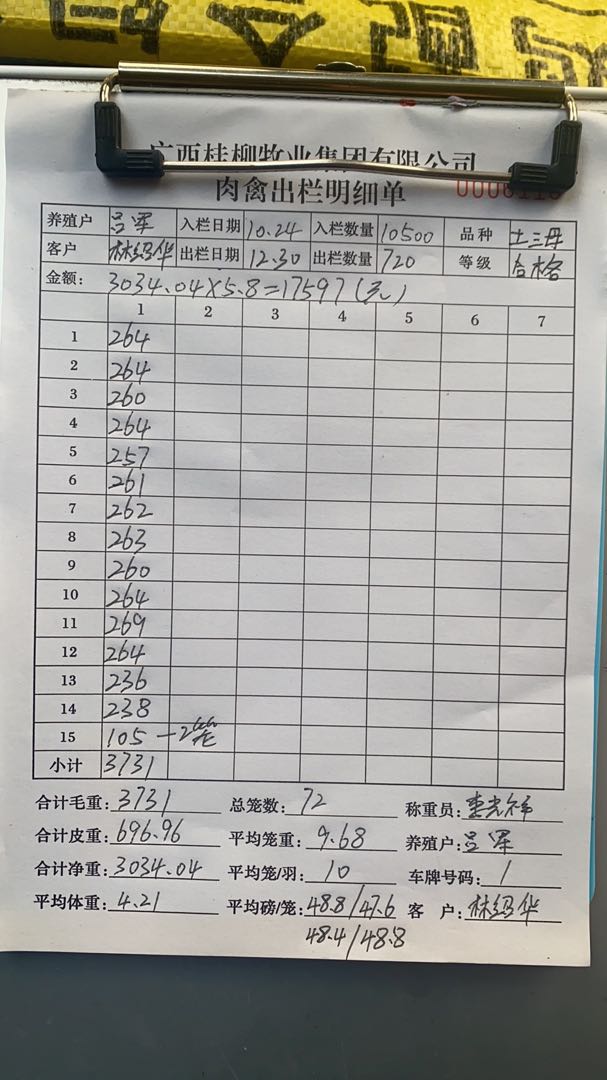 广西桂柳牧业集团有限公司
肉禽出栏明细单
养殖户 吕军 入栏日期 10.24 入栏数量 10500 品种 土三母
客户 林绍华 出栏日期 12.30 出栏数量 720 等级 合格
金额: 3034.04×5.8=17597(元)
1 2 3 4 5 6 7
1 264
2 264
3 260
4 264
5 257
6 261
7 262
8 263
9 260
10 264
11 269
12 264
13 236
14 238
15 105 —2笼
小计 3731
合计毛重: 3731 总笼数: 72 称重员:
合计皮重: 696.96 平均笼重: 9.68 养殖户: 吕军
合计净重: 3034.04 平均笼/羽: 10 车牌号码: 1
平均体重: 4.21 平均磅/笼: 48.8/47.6 客 户: 林绍华
48.4/48.8